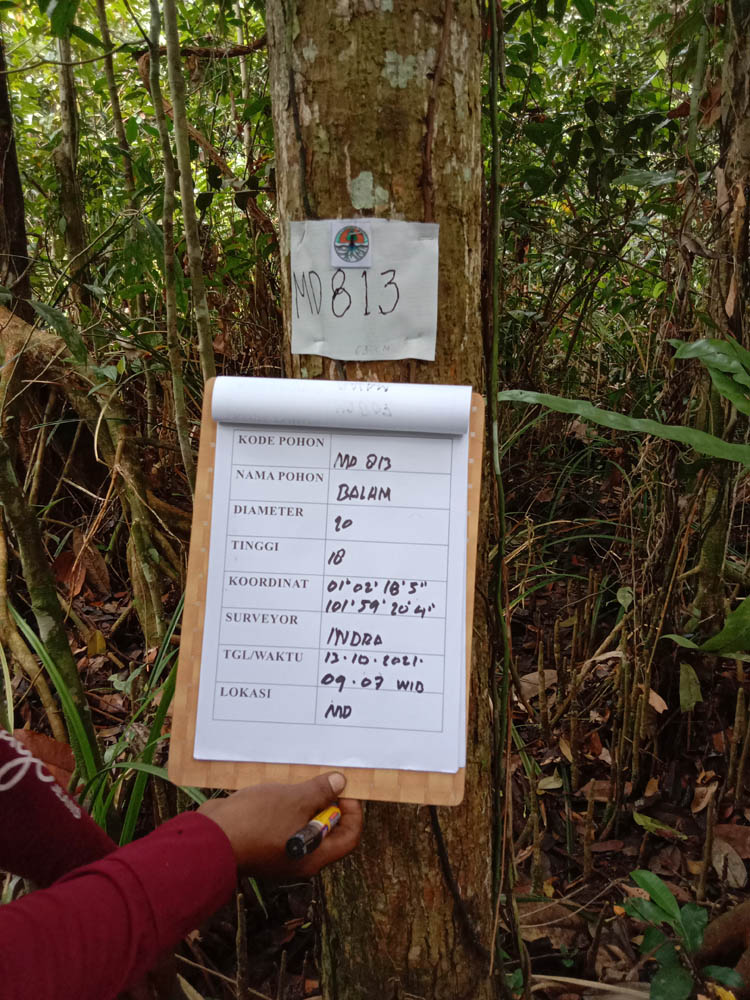 MD 813
KODE POHON MD 813
NAMA POHON BALAM
DIAMETER 20
TINGGI 18
KOORDINAT 01°02'18'5"
101°59'20'4"
SURVEYOR INDRA
TGL/WAKTU 13.10.2021.
09.07 WIB
LOKASI MD